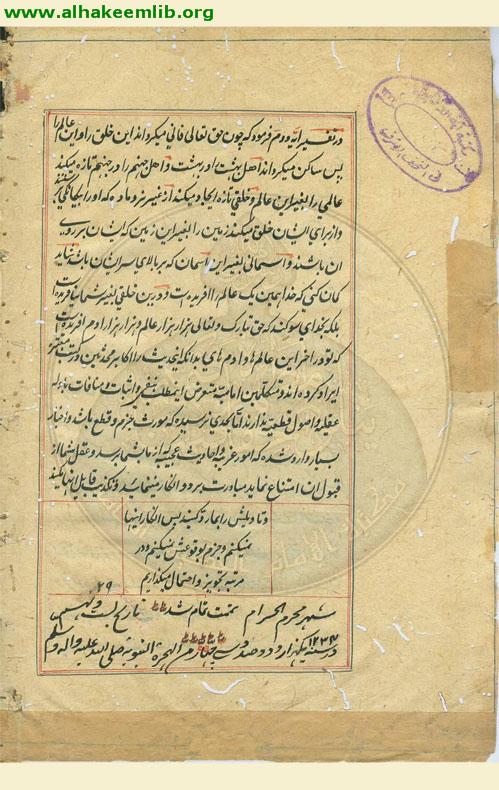 www.alhakeemlib.org
در تفسیر این فرموده که چون حق تعالی فانی میکرداند این خلق را و این عالم را
پس ساکن میکرداند اهل بهشت را در بهشت و اهل جهنم را در جهنم تازه میکند
عالمی را بغیر این عالم و خلقی تازه ایجاد میکند از غیر نر و ماده که او را به یکانکی
و از برای ایشان خلق میکند زمین را بغیر این زمین که ایشان بر روی
ان باشند و اسمانی بغیر این اسمان که بر بالای سر ایشان باشد شاید
کمان کنی که خدا همین یک عالم را افریده است و دیگر خلقی بغیر شما نیافریده
بلکه بخدای سوکند که حق تبارک و تعالی هزار هزار عالم و هزار هزار ادم افریده است
که تو در اخر این عالمها و ادم های بدانکه این حدیث را اکابر محدثین در کتب معتبره
ایراد کرده اند و متکلمین امامیه متعرض این مطلب بنفی و اثبات و منافات بادله
عقلیه و اصول قطعیه ندارند اما بحدی نرسیده که مورث جزم و قطع باشد و اخبار
بسیار وارد شده که امور غریبه و احادیث عجیبه که از ما بشما برسد و عقل شما از
قبول ان امتناع نماید مبادرت برد و انکار منمائید و تکذیب قایل انها مکنید
و تاویلش را بما رد کنید پس انکار اینها
نمیکنیم و جزم بوقوعش نمیکنیم و در
مرتبه تجویز و احتمال میکذاریم
شهر محرم الحرام تمت تمام شد تاریخ بیست و نهم ۲۹
۱۲۳۴ در سنه یکهزار و دو صد و سی چهار من الهجرة النبویه صلی الله علیه و اله و سلم